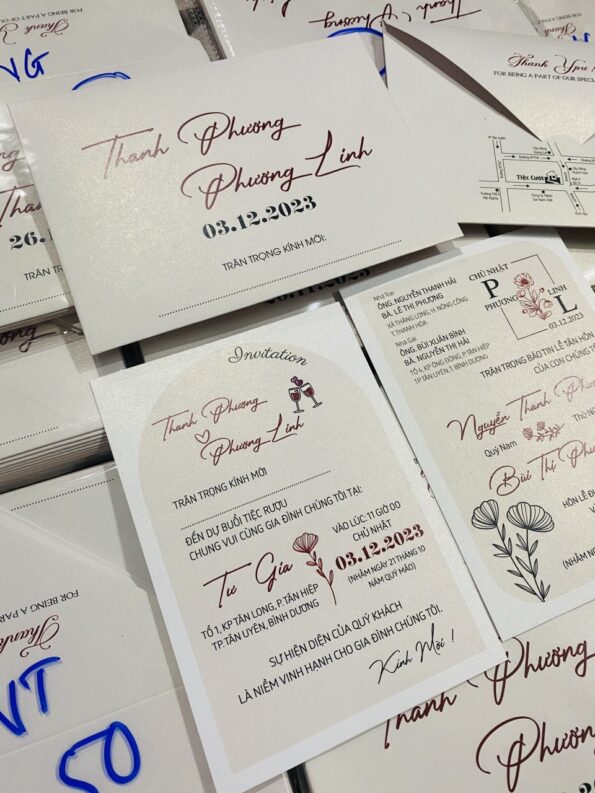 FOR BEING A PART OF
Thank
NG
Thanh Phương
Thank You
FOR BEING A PART OF OUR SPECIAL
Tiệc Cưới
Thanh Phương
Phương Linh
03.12.2023
TRÂN TRỌNG KÍNH MỜI:
26.
Invitation
Thanh Phương
Phương Linh
TRÂN TRỌNG KÍNH MỜI
ĐẾN DỰ BUỔI TIỆC RƯỢU
CHUNG VUI CÙNG GIA ĐÌNH CHÚNG TÔI TẠI:
Tư Gia
TỔ 1, KP TÂN LONG, P. TÂN HIỆP
TP. TÂN UYÊN, BÌNH DƯƠNG
VÀO LÚC: 11 GIỜ 00
CHỦ NHẬT
03.12.2023
(NHẰM NGÀY 21 THÁNG 10
NĂM QUÝ MÃO)
SỰ HIỆN DIỆN CỦA QUÝ KHÁCH
LÀ NIỀM VINH HẠNH CHO GIA ĐÌNH CHÚNG TÔI.
Kính Mời !
Nhà Trai
ÔNG. NGUYỄN THANH HẢI
BÀ. LÊ THỊ PHƯỢNG
XÃ THĂNG LONG, H. NÔNG CỐNG
T. THANH HÓA
Nhà Gái
ÔNG. BÙI XUÂN BÌNH
BÀ. NGUYỄN THỊ HẢI
TỔ 4, KP ÔNG ĐÔNG, P. TÂN HIỆP
TP. TÂN UYÊN, T. BÌNH DƯƠNG
CHỦ NHẬT
P
PHƯƠNG
LINH
L
03.12.2023
TRÂN TRỌNG BÁO TIN LỄ TÂN HÔN
CỦA CON CHÚNG TÔI
Nguyễn Thanh Phương
Quý Nam
Thứ
Bùi Thị
HÔN LỄ
VÀO
(NHẰM
FOR BEING A PART
Thank
VT
50
Thanh Phương
Phương